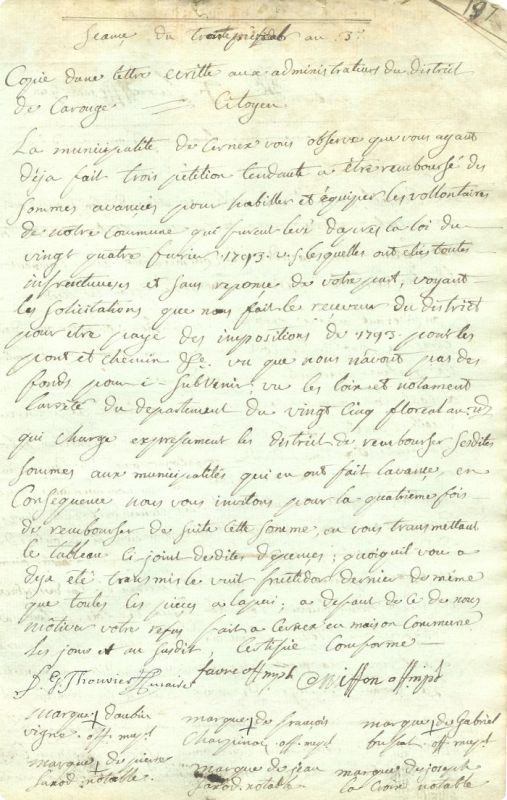 197
Seance du trente prerial an 3e
Copie dune lettre ecritte aux administrateurs du district
de Carouge = Citoyen
La municipalité de Cernex vous observe que vous ayant
Déja fait trois petition tendante a être remboursé des
sommes avancées pour habiller et équiper les vollontaires
de notre Commune qui furent levé dapres la loi du
vingt quatre fevrier 1793. v.s. lesquelles ont etés toutes
infructueuses et sans reponce de votre part, voyant
les solicitations que nous fait le receveur du district
pour etre payé des impositions de 1793. pour les
pont et chemin &c. vu que nous navont pas des
fonds pour i subvenir, vu les loix et notament
larreté du departement du vingt cinq floreal an
qui charge expressement les district de rembourser sesdites
sommes aux municipalités qui en ont fait lavance, en
Consequence nous vous invitons pour la quatrieme fois
de rembourser de suite cette somme, en vous transmettant
le tableau ci joint desdites depences; quoiquil vou a
deja eté transmis le vuit fructidor dernier de même
que toutes les pieces a lapui; a defaut de ce de nous
motiver votre refus fait a Cernex en maison Commune
les jour et an susdit, Certifié Conforme
J. G. Thouvier favre off mpl Miffon off mpl
marque † daubin marque † de francois marque † de Gabriel
vigne. off. mpl. off. mpl. off mpl
marque † de pierre marque † de jean marque † de joseph
saxod notable. saxod. notable la Croix notable